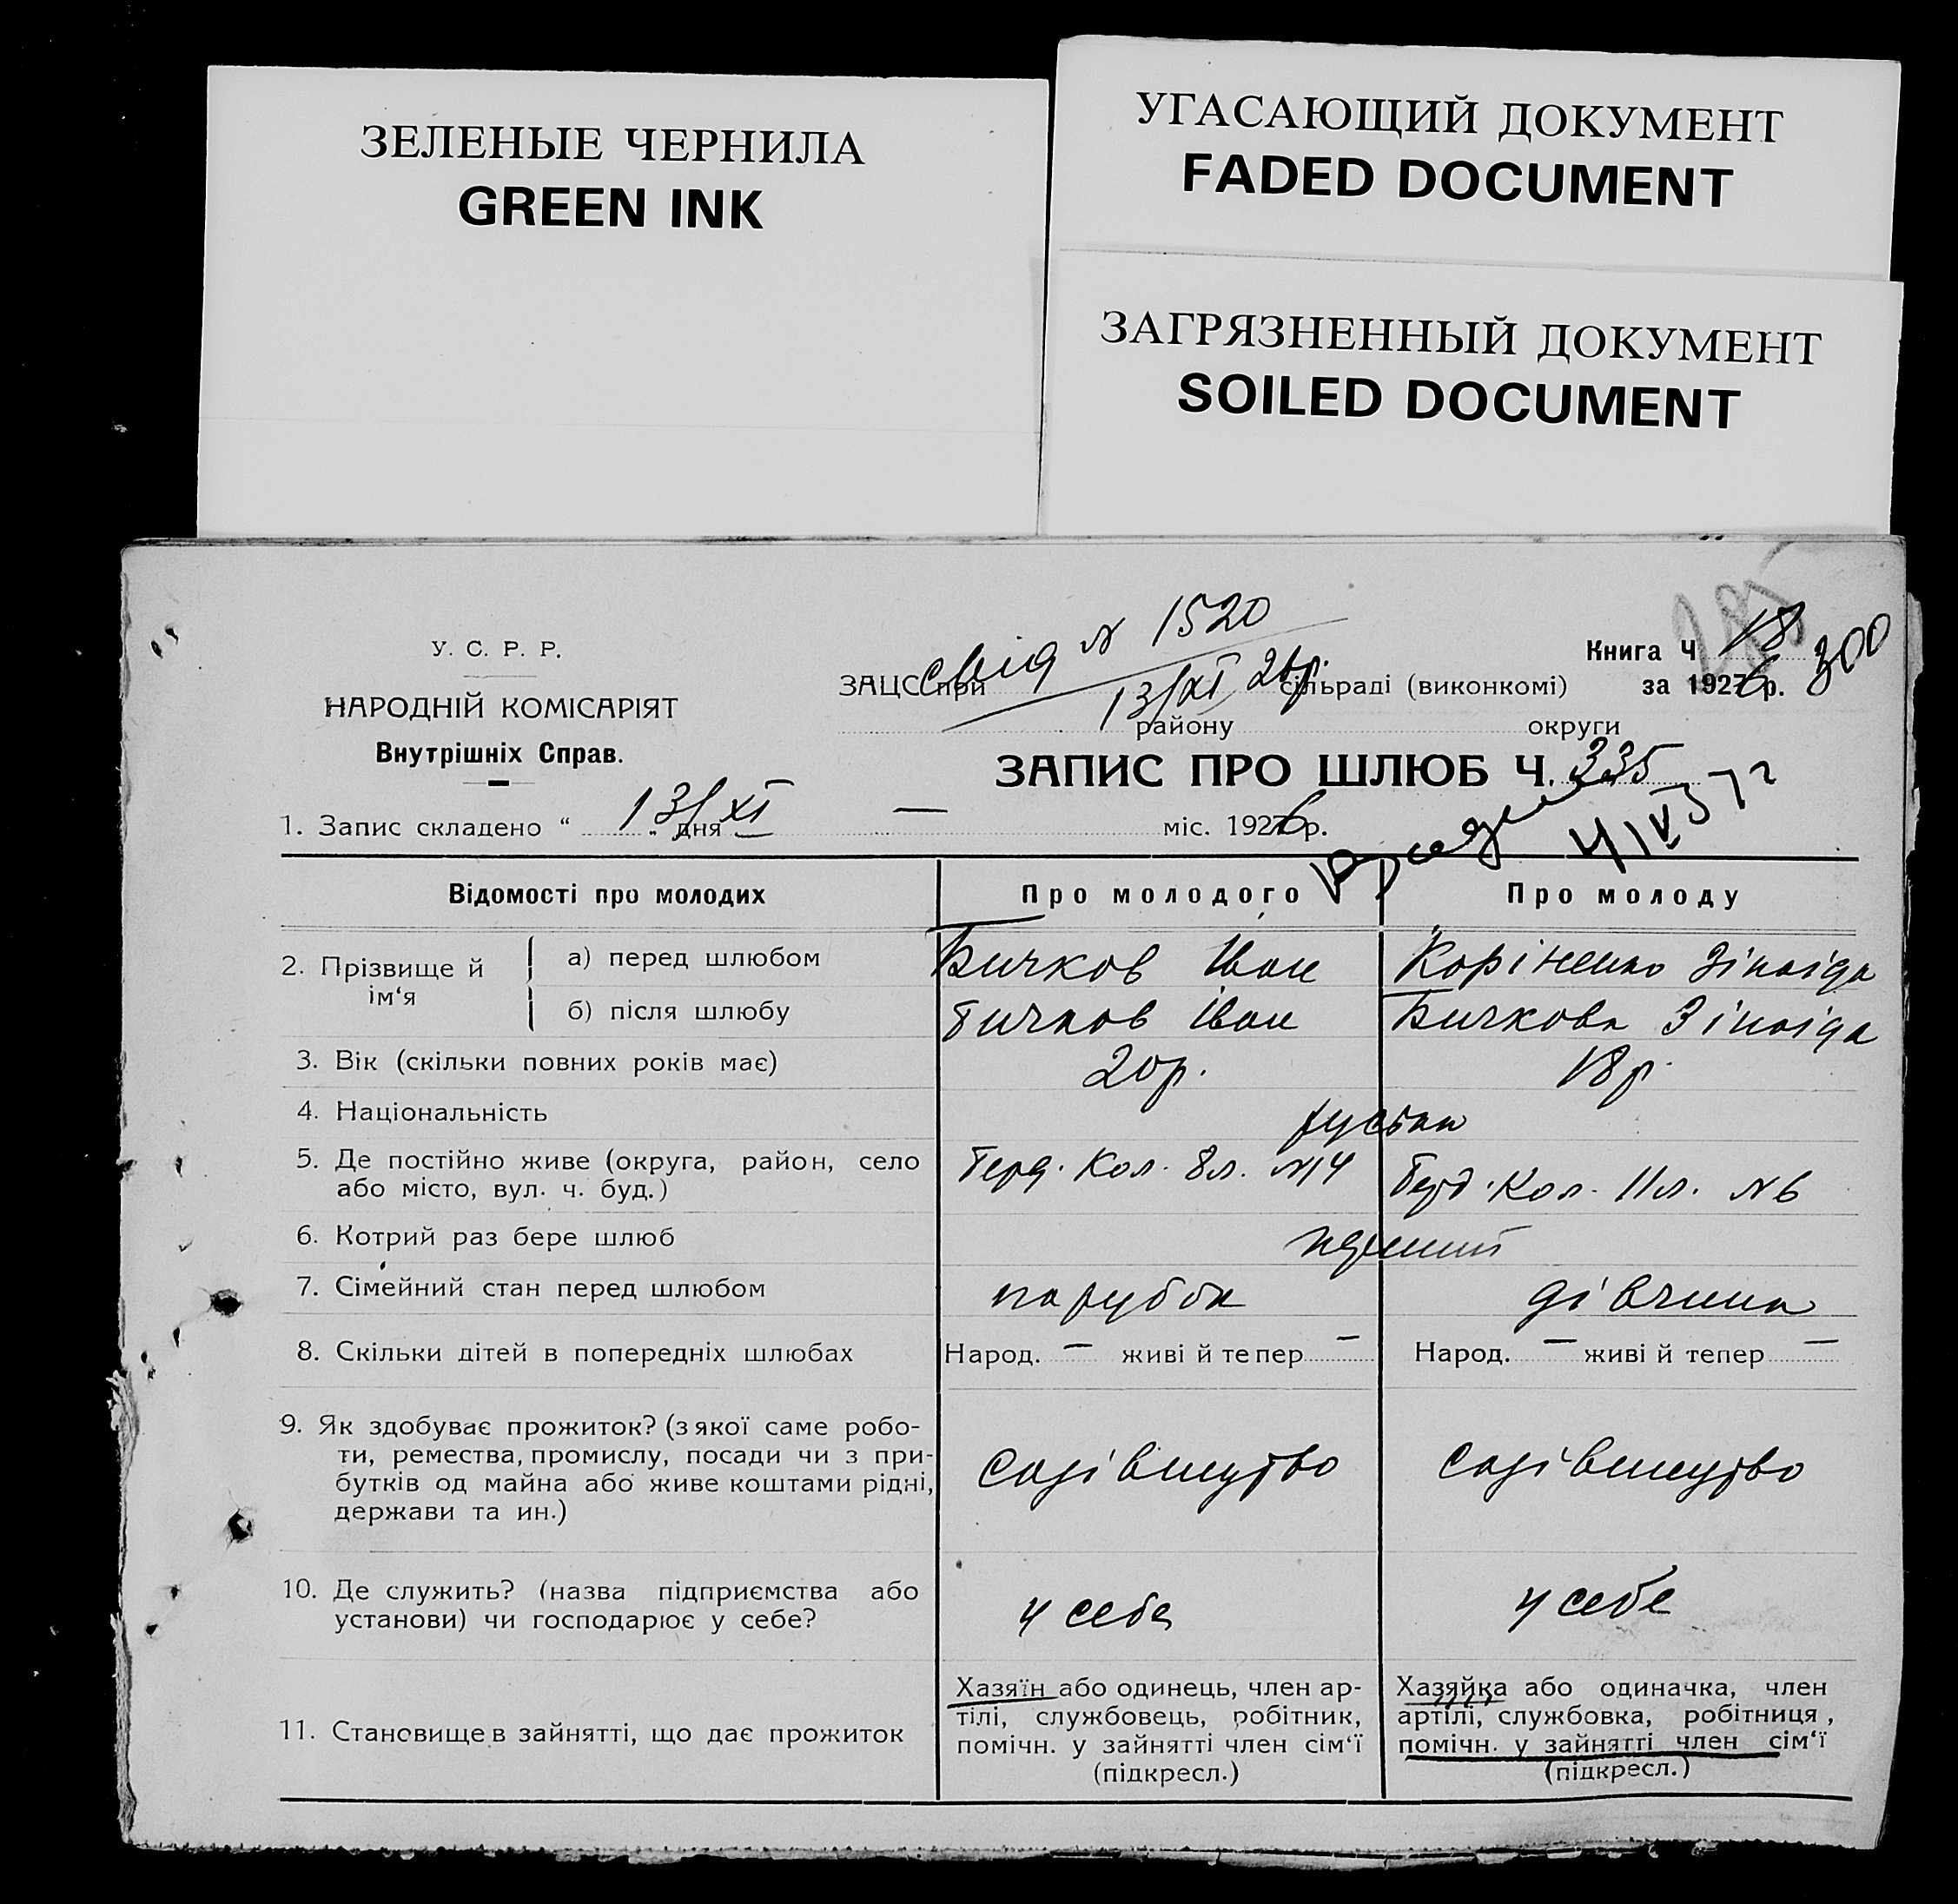 ЗЕЛЕНЫЕ ЧЕРНИЛА
GREEN INK
УГАСАЮЩИЙ ДОКУМЕНТ
FADED DOCUMENT
ЗАГРЯЗНЕННЫЙ ДОКУМЕНТ
SOILED DOCUMENT
У. С. Р. Р.
НАРОДНІЙ КОМІСАРІЯТ
Внутрішніх Справ.
свід N 1520
13/XI 26р.
Книга Ч 18 300
ЗАЦС при сільраді (виконкомі) за 1926 р.
району округи
ЗАПИС ПРО ШЛЮБ Ч. 335
1. Запис складено “ 13/XI „ дня — міс. 1926 р.
Відомості про молодих Про молодого Про молоду
2. Прізвище й ім‘я
а) перед шлюбом Бичков Іван Коріненко Зінаіда
б) після шлюбу Бичков Іван Бичкова Зінаіда
3. Вік (скільки повних років має) 20р. 18р.
4. Національність
5. Де постійно живе (округа, район, село або місто, вул. ч. буд.) Берд. Кол. 8л. N14 Берд. Кол. 11л. N6
6. Котрий раз бере шлюб перший
7. Сімейний стан перед шлюбом парубок дівчина
8. Скільки дітей в попередніх шлюбах Народ. — живі й тепер — Народ. — живі й тепер —
9. Як здобуває прожиток? (з якої саме робо-
ти, ремества, промислу, посади чи з при-
бутків од майна або живе коштами рідні,
держави та ин.)
садівництво садівництво
10. Де служить? (назва підприємства або
установи) чи господарює у себе?
у себе у себе
11. Становище в зайнятті, що дає прожиток
Хазяїн або одинець, член ар-
тілі, службовець, робітник,
помічн. у зайнятті член сім‘ї
(підкресл.)
Хазяйка або одиначка, член
артілі, службовка, робітниця,
помічн. у зайнятті член сім‘ї
(підкресл.)